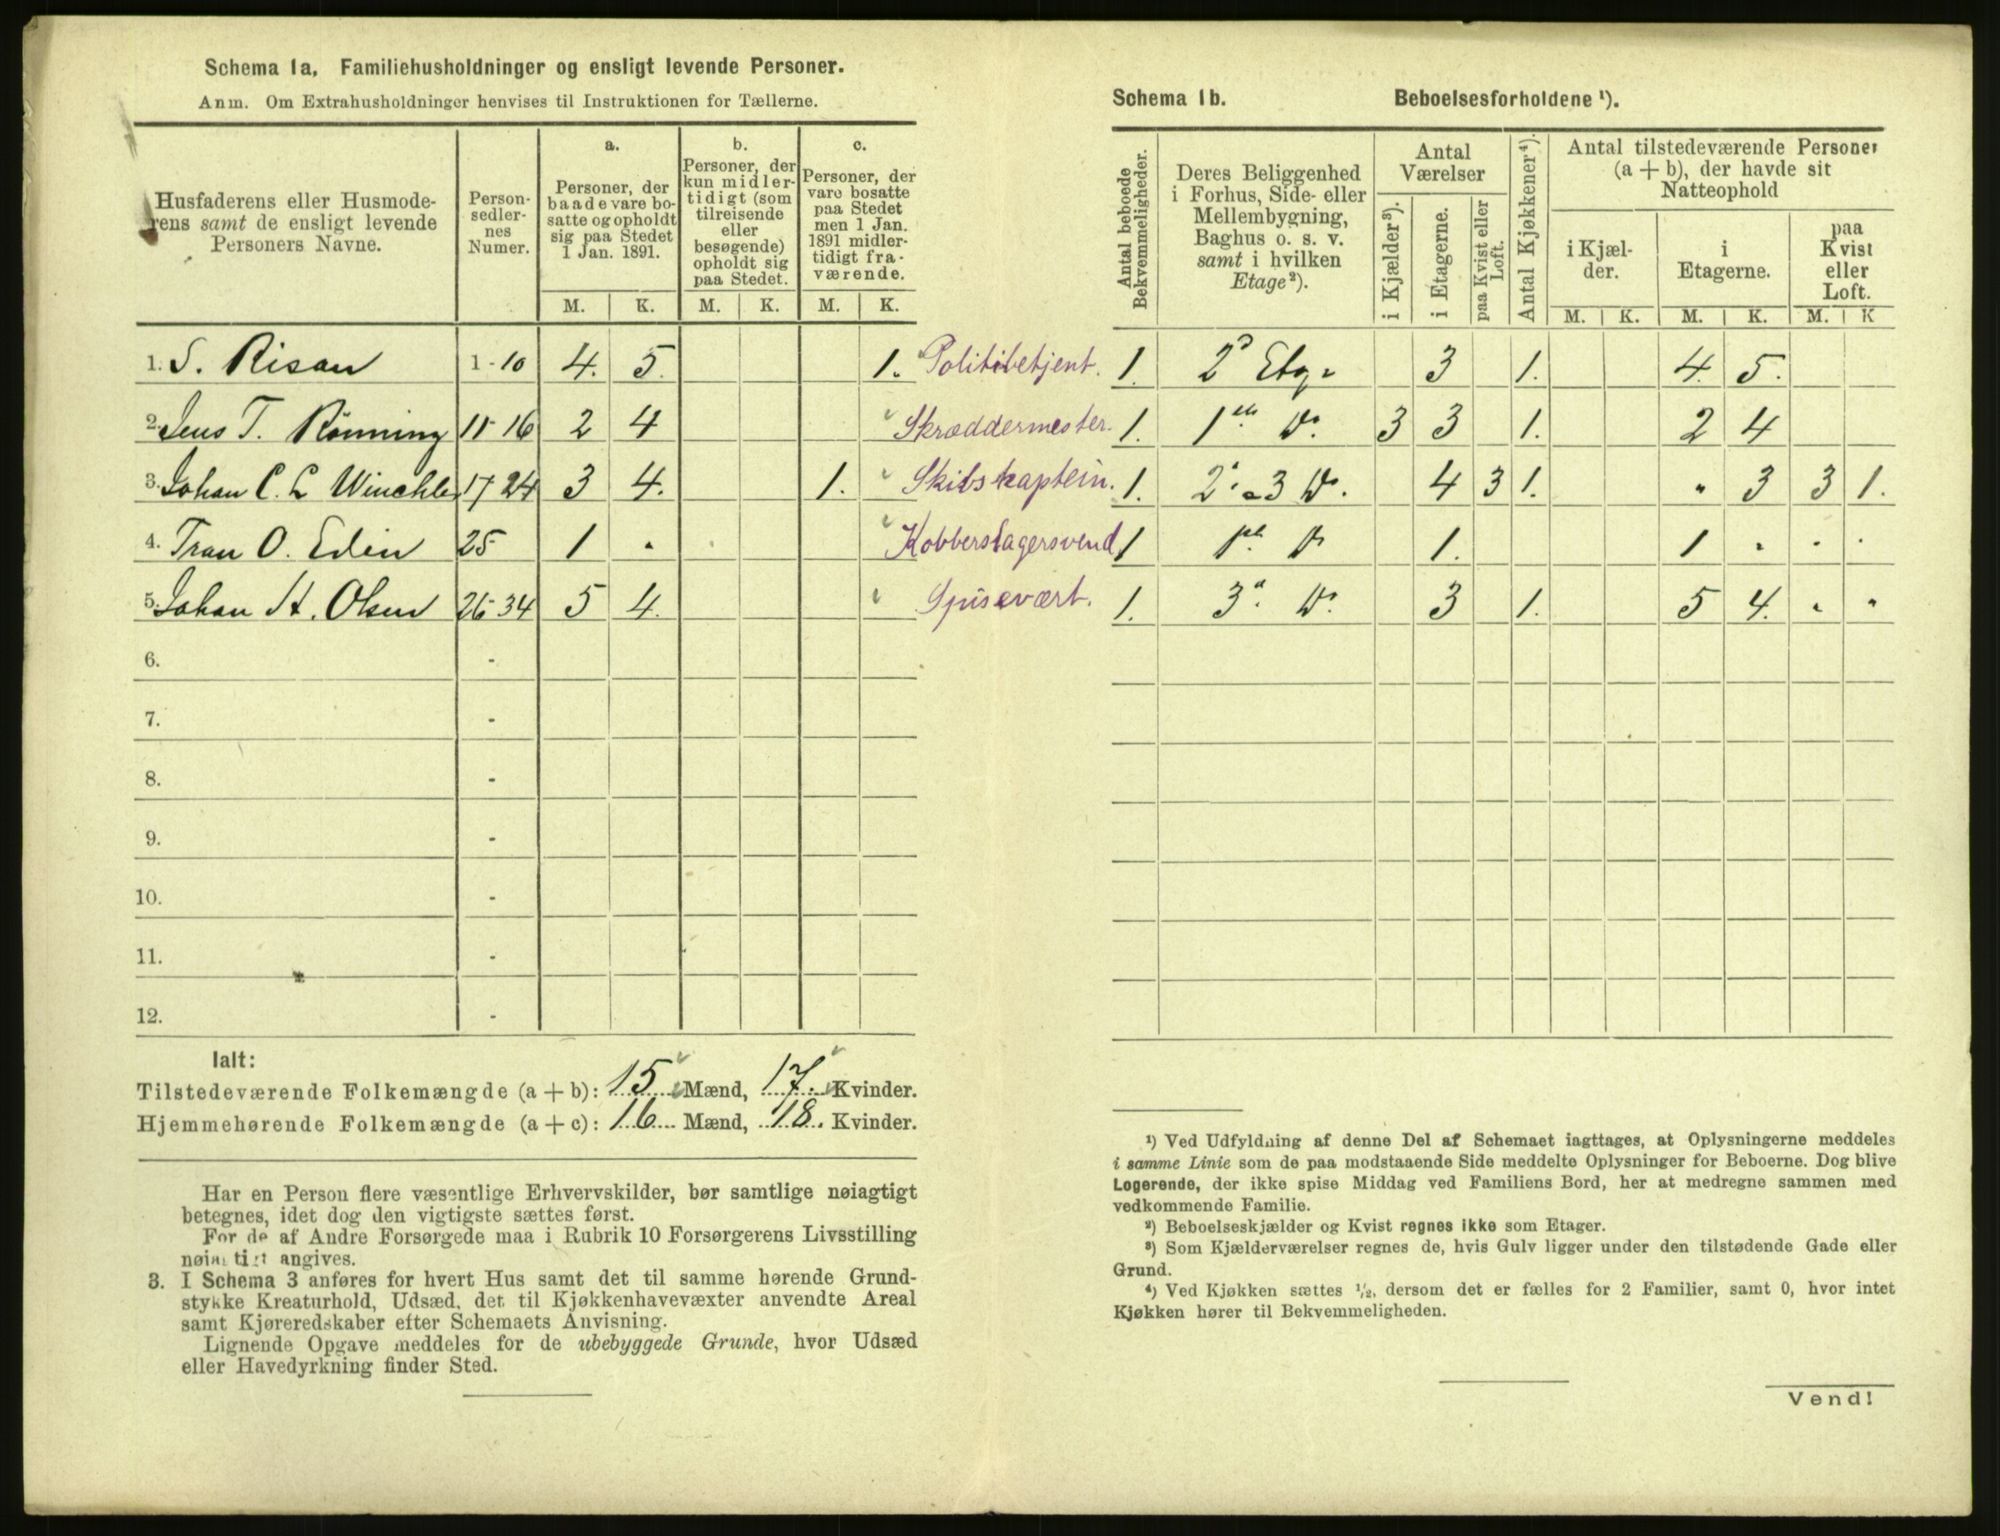 Schema 1a. Familiehusholdninger og ensligt levende Personer.
Anm. Om Extrahusholdninger henvises til Instruktionen for Tællerne.
Husfaderens eller Husmoderens samt de ensligt levende Personers Navne.
Personsedlernes Numer.
a. Personer, der baade vare bosatte og opholdt sig paa Stedet 1 Jan. 1891.
b. Personer, der kun midlertidigt (som tilreisende eller besøgende) opholdt sig paa Stedet.
c. Personer, der vare bosatte paa Stedet men 1 Jan. 1891 midlertidigt fraværende.
M. K. M. K. M. K.
1. S. Risan 1-10 4. 5. 1. Politibetjent.
2. Jens T. Rønning 11-16 2 4 Skræddermester.
3. Johan C. L Winchle 17 24 3 4. 1. Skibskaptein.
4. Tran O. Edin 25- 1 - Kobberslagersvend
5. Johan H. Olsen 26-34 5 4. Spisevært.
6. -
7. -
8. -
9. -
10. -
11. -
12. -
Ialt:
Tilstedeværende Folkemængde (a + b): 15 Mænd, 17. Kvinder.
Hjemmehørende Folkemængde (a + c): 16 Mænd, 18. Kvinder.
Har en Person flere væsentlige Erhvervskilder, bør samtlige nøiagtigt
betegnes, idet dog den vigtigste sættes først.
For de af Andre Forsørgede maa i Rubrik 10 Forsørgerens Livsstilling
nøiagtigt angives.
3. I Schema 3 anføres for hvert Hus samt det til samme hørende Grund-
stykke Kreaturhold, Udsæd, det til Kjøkkenhavevæxter anvendte Areal
samt Kjøreredskaber efter Schemaets Anvisning.
Lignende Opgave meddeles for de ubebyggede Grunde, hvor Udsæd
eller Havedyrkning finder Sted.
Schema 1b. Beboelsesforholdene ¹).
Antal beboede Bekvemmeligheder.
Deres Beliggenhed i Forhus, Side- eller Mellembygning, Baghus o. s. v. samt i hvilken Etage²).
Antal Værelser
i Kjælder³).
i Etagerne.
paa Kvist eller Loft.
Antal Kjøkkener⁴).
Antal tilstedeværende Personer (a + b), der havde sit Natteophold
i Kjælder.
i Etagerne.
paa Kvist eller Loft.
M. K. M. K. M. K
1. 2d Etg. 3 1. 4. 5.
1. 1ste Do. 3 3 1. 2 4
1. 2. - 3 Do. 4 3 1. " 3 3 1.
1 1ste Do 1. 1 " " "
1. 3d. Do. 3 1. 5 4. " "
¹) Ved Udfyldning af denne Del af Schemaet iagttages, at Oplysningerne meddeles
i samme Linie som de paa modstaaende Side meddelte Oplysninger for Beboerne. Dog blive
Logerende, der ikke spise Middag ved Familiens Bord, her at medregne sammen med
vedkommende Familie.
²) Beboelseskjælder og Kvist regnes ikke som Etager.
³) Som Kjælderværelser regnes de, hvis Gulv ligger under den tilstødende Gade eller
Grund.
⁴) Ved Kjøkken sættes ½, dersom det er fælles for 2 Familier, samt 0, hvor intet
Kjøkken hører til Bekvemmeligheden.
Vend!